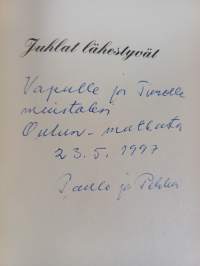 Juhlat lähestyvät
Vapulle ja Turelle
muistoksi
Oulun-matkasta
23.5.1997
ja Pekka